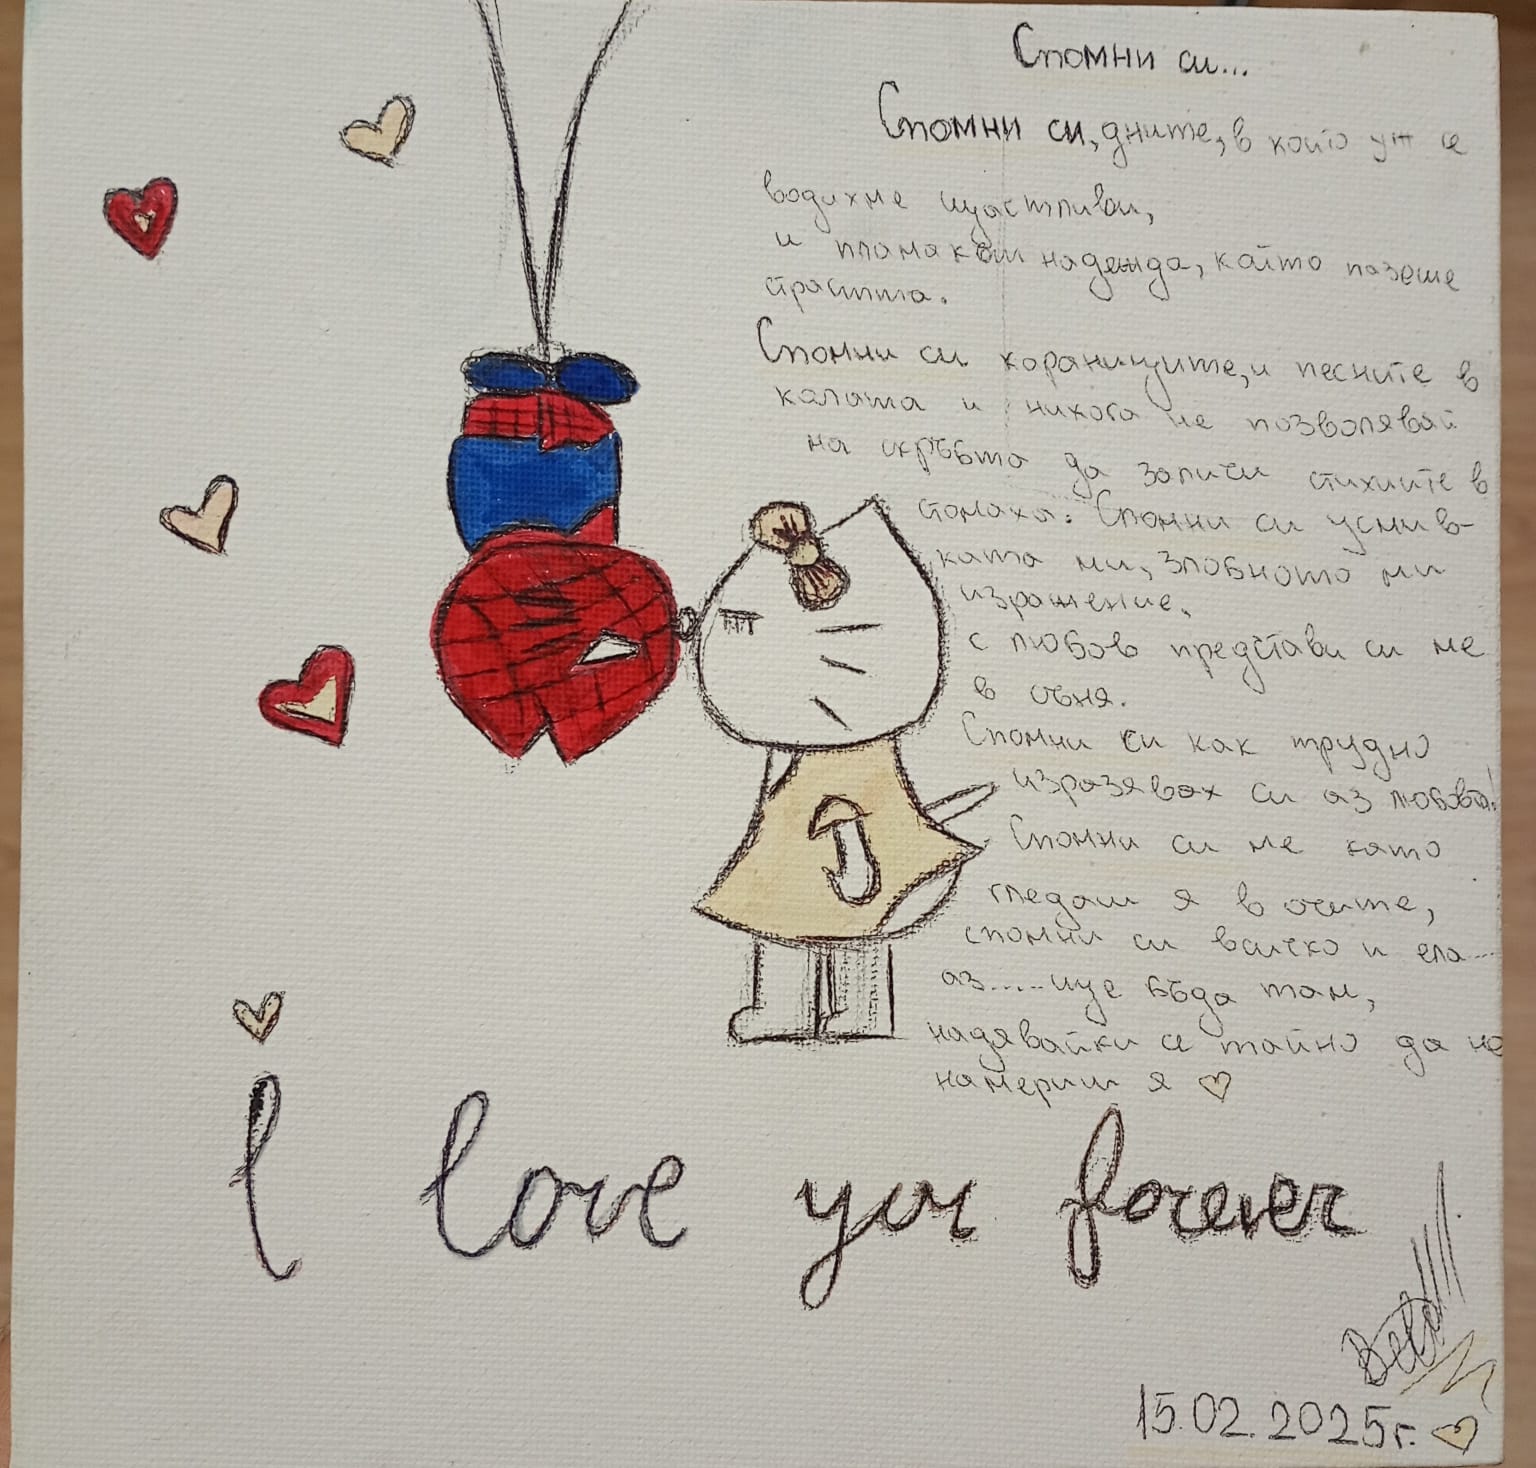 Спомни си...
Спомни си, дните, в който уж се
водихме щастливи,
и пламъкъш надежда, който пазеше
страстта.
Спомни си хораницуте, и песните в
калата и никога не позволявай
на скръбта да запиши стихиите в
стомаха. Спомни си усмив-
ката ми, злобното ми
изражение.
с любов представи си ме
в съня.
Спомни си как трудно
изразявах си аз любовта!
Спомни си ме като
гледаш я в очите,
спомни си всичко и ела...
аз......ще бъда там,
надявайки се тайно да не
намериш я ♡
I love you forever
15.02.2025г. ♡